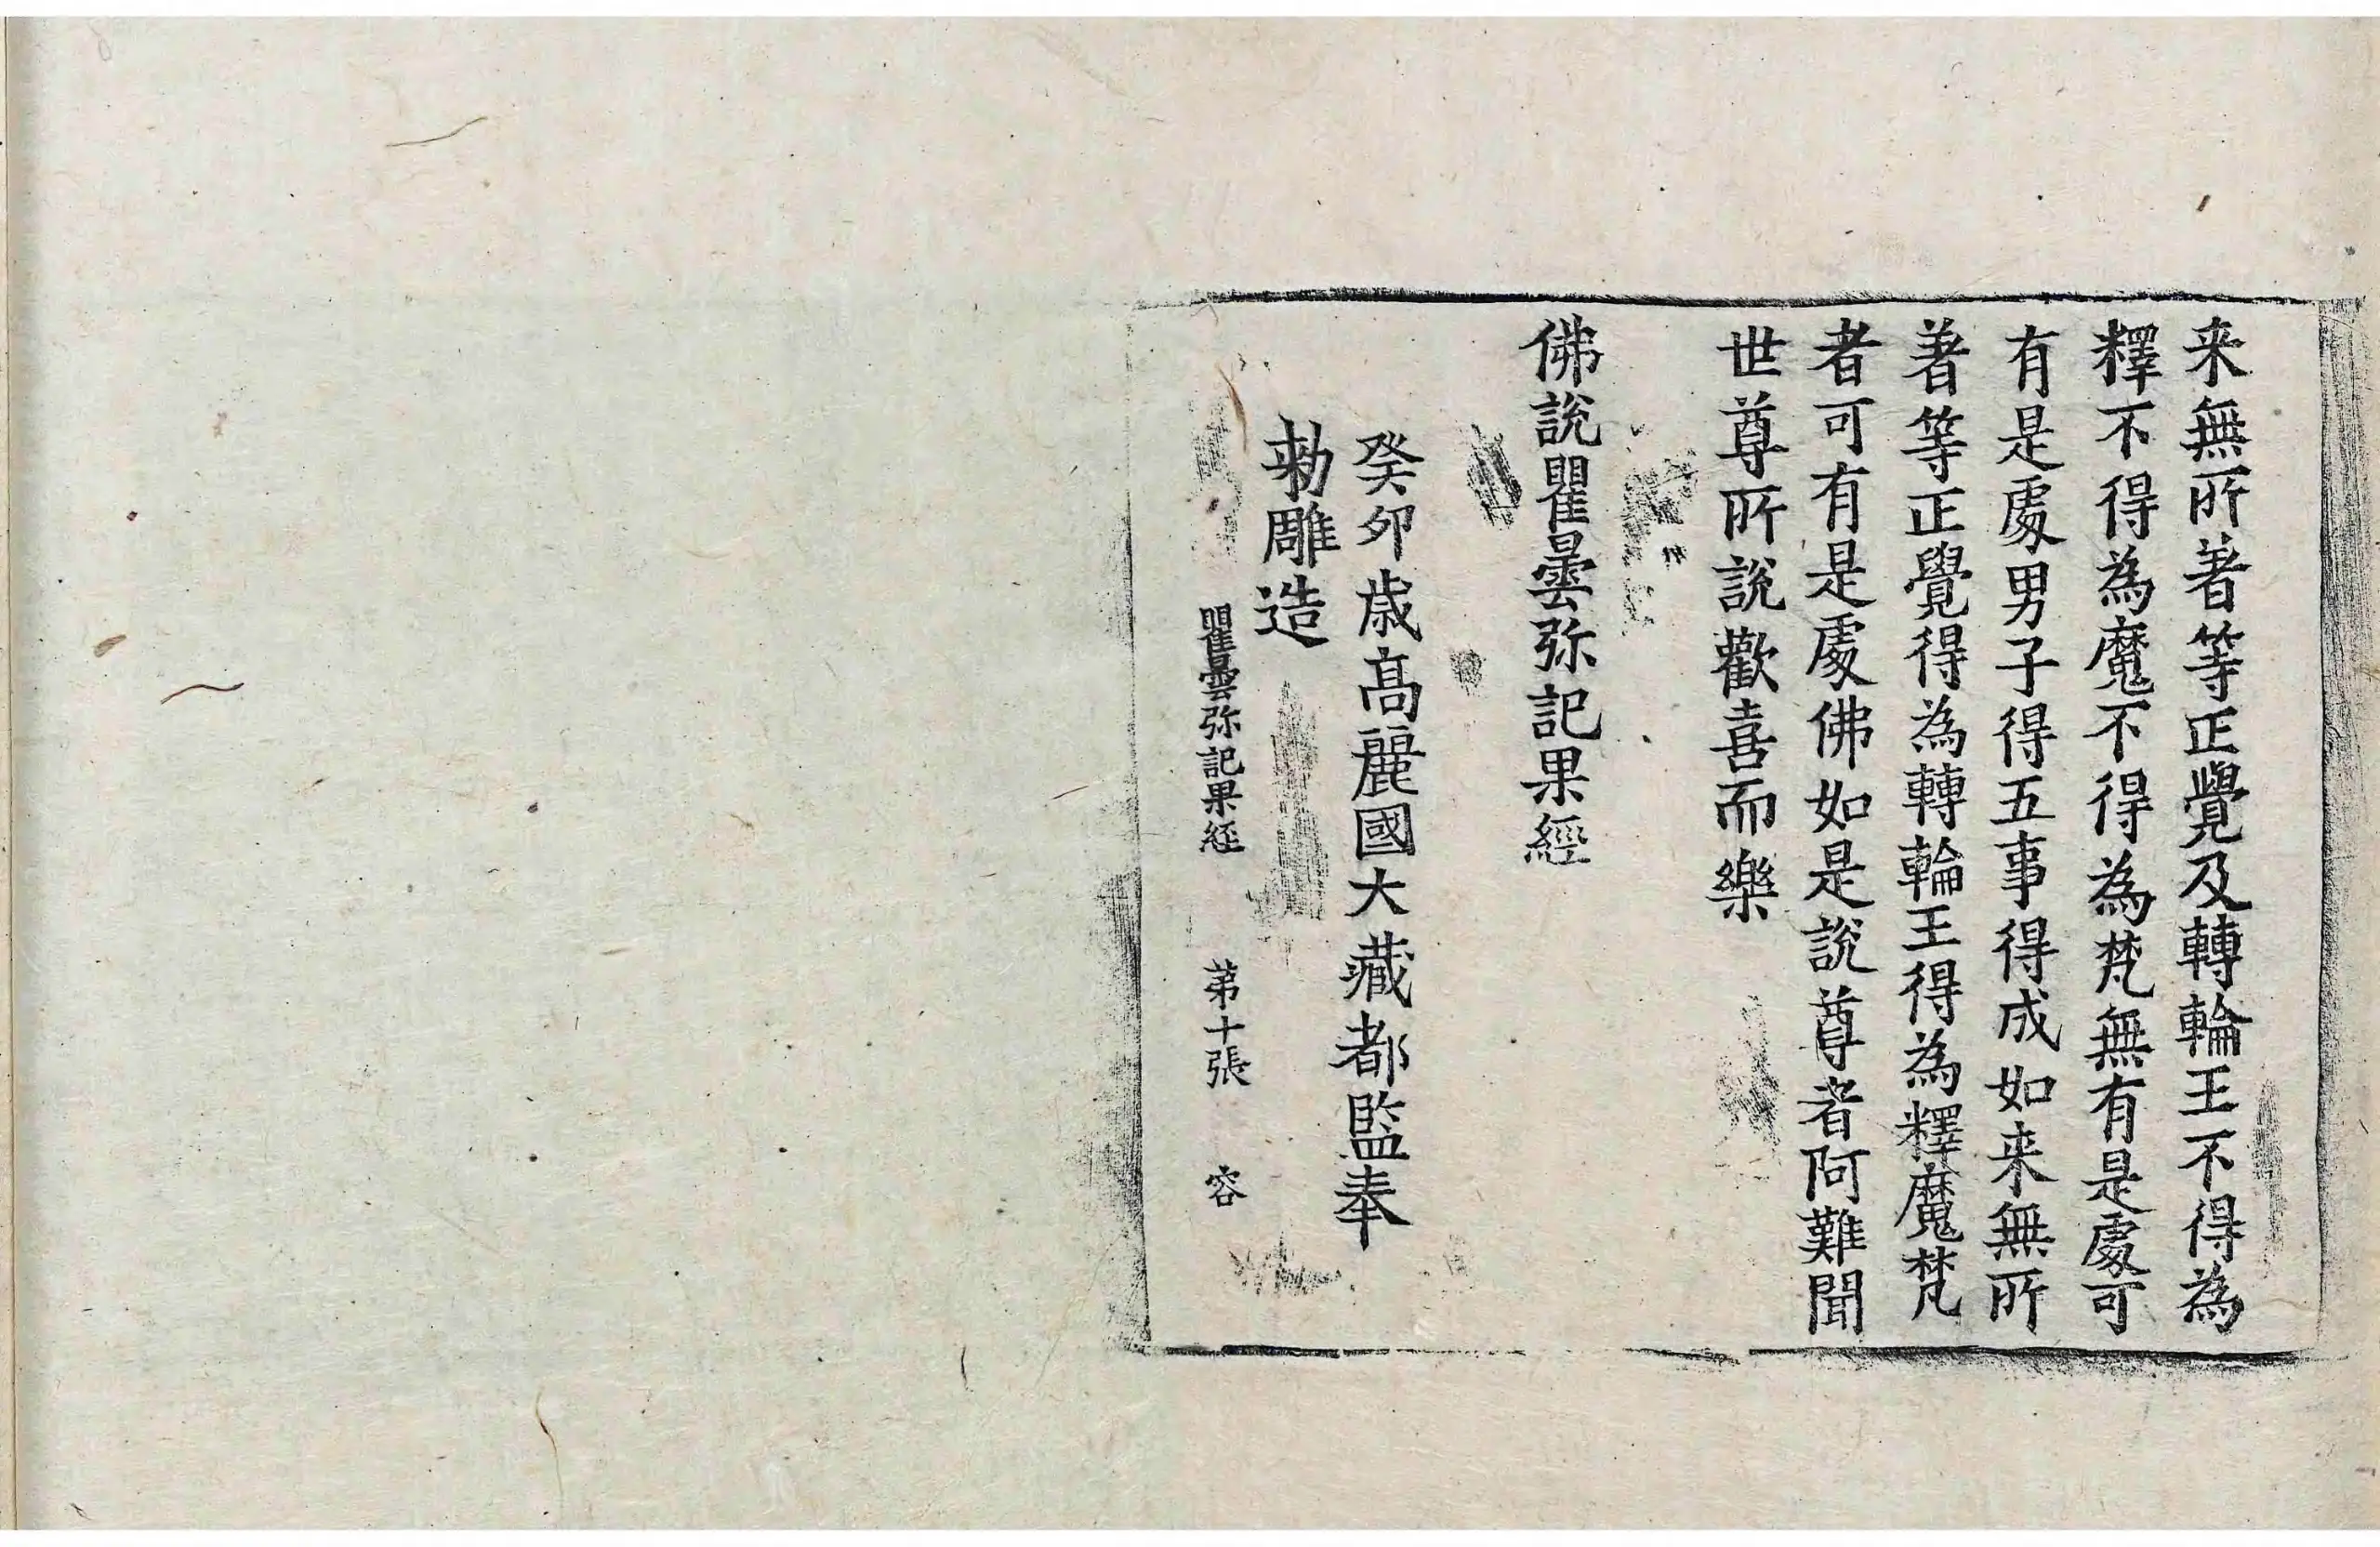 来無所著等正覺及轉輪王不得為
釋不得為魔不得為梵無有是處可
有是處男子得五事得成如来無所
著等正覺得為轉輪王得為釋魔梵
者可有是處佛如是說尊者阿難聞
世尊所說歡喜而樂
佛說瞿曇弥記果經
癸卯歳髙麗國大藏都監奉
勑雕造
瞿曇弥記果經 苐十張 容